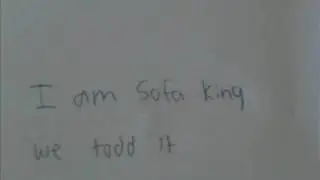 I am Sofa king
we todd it